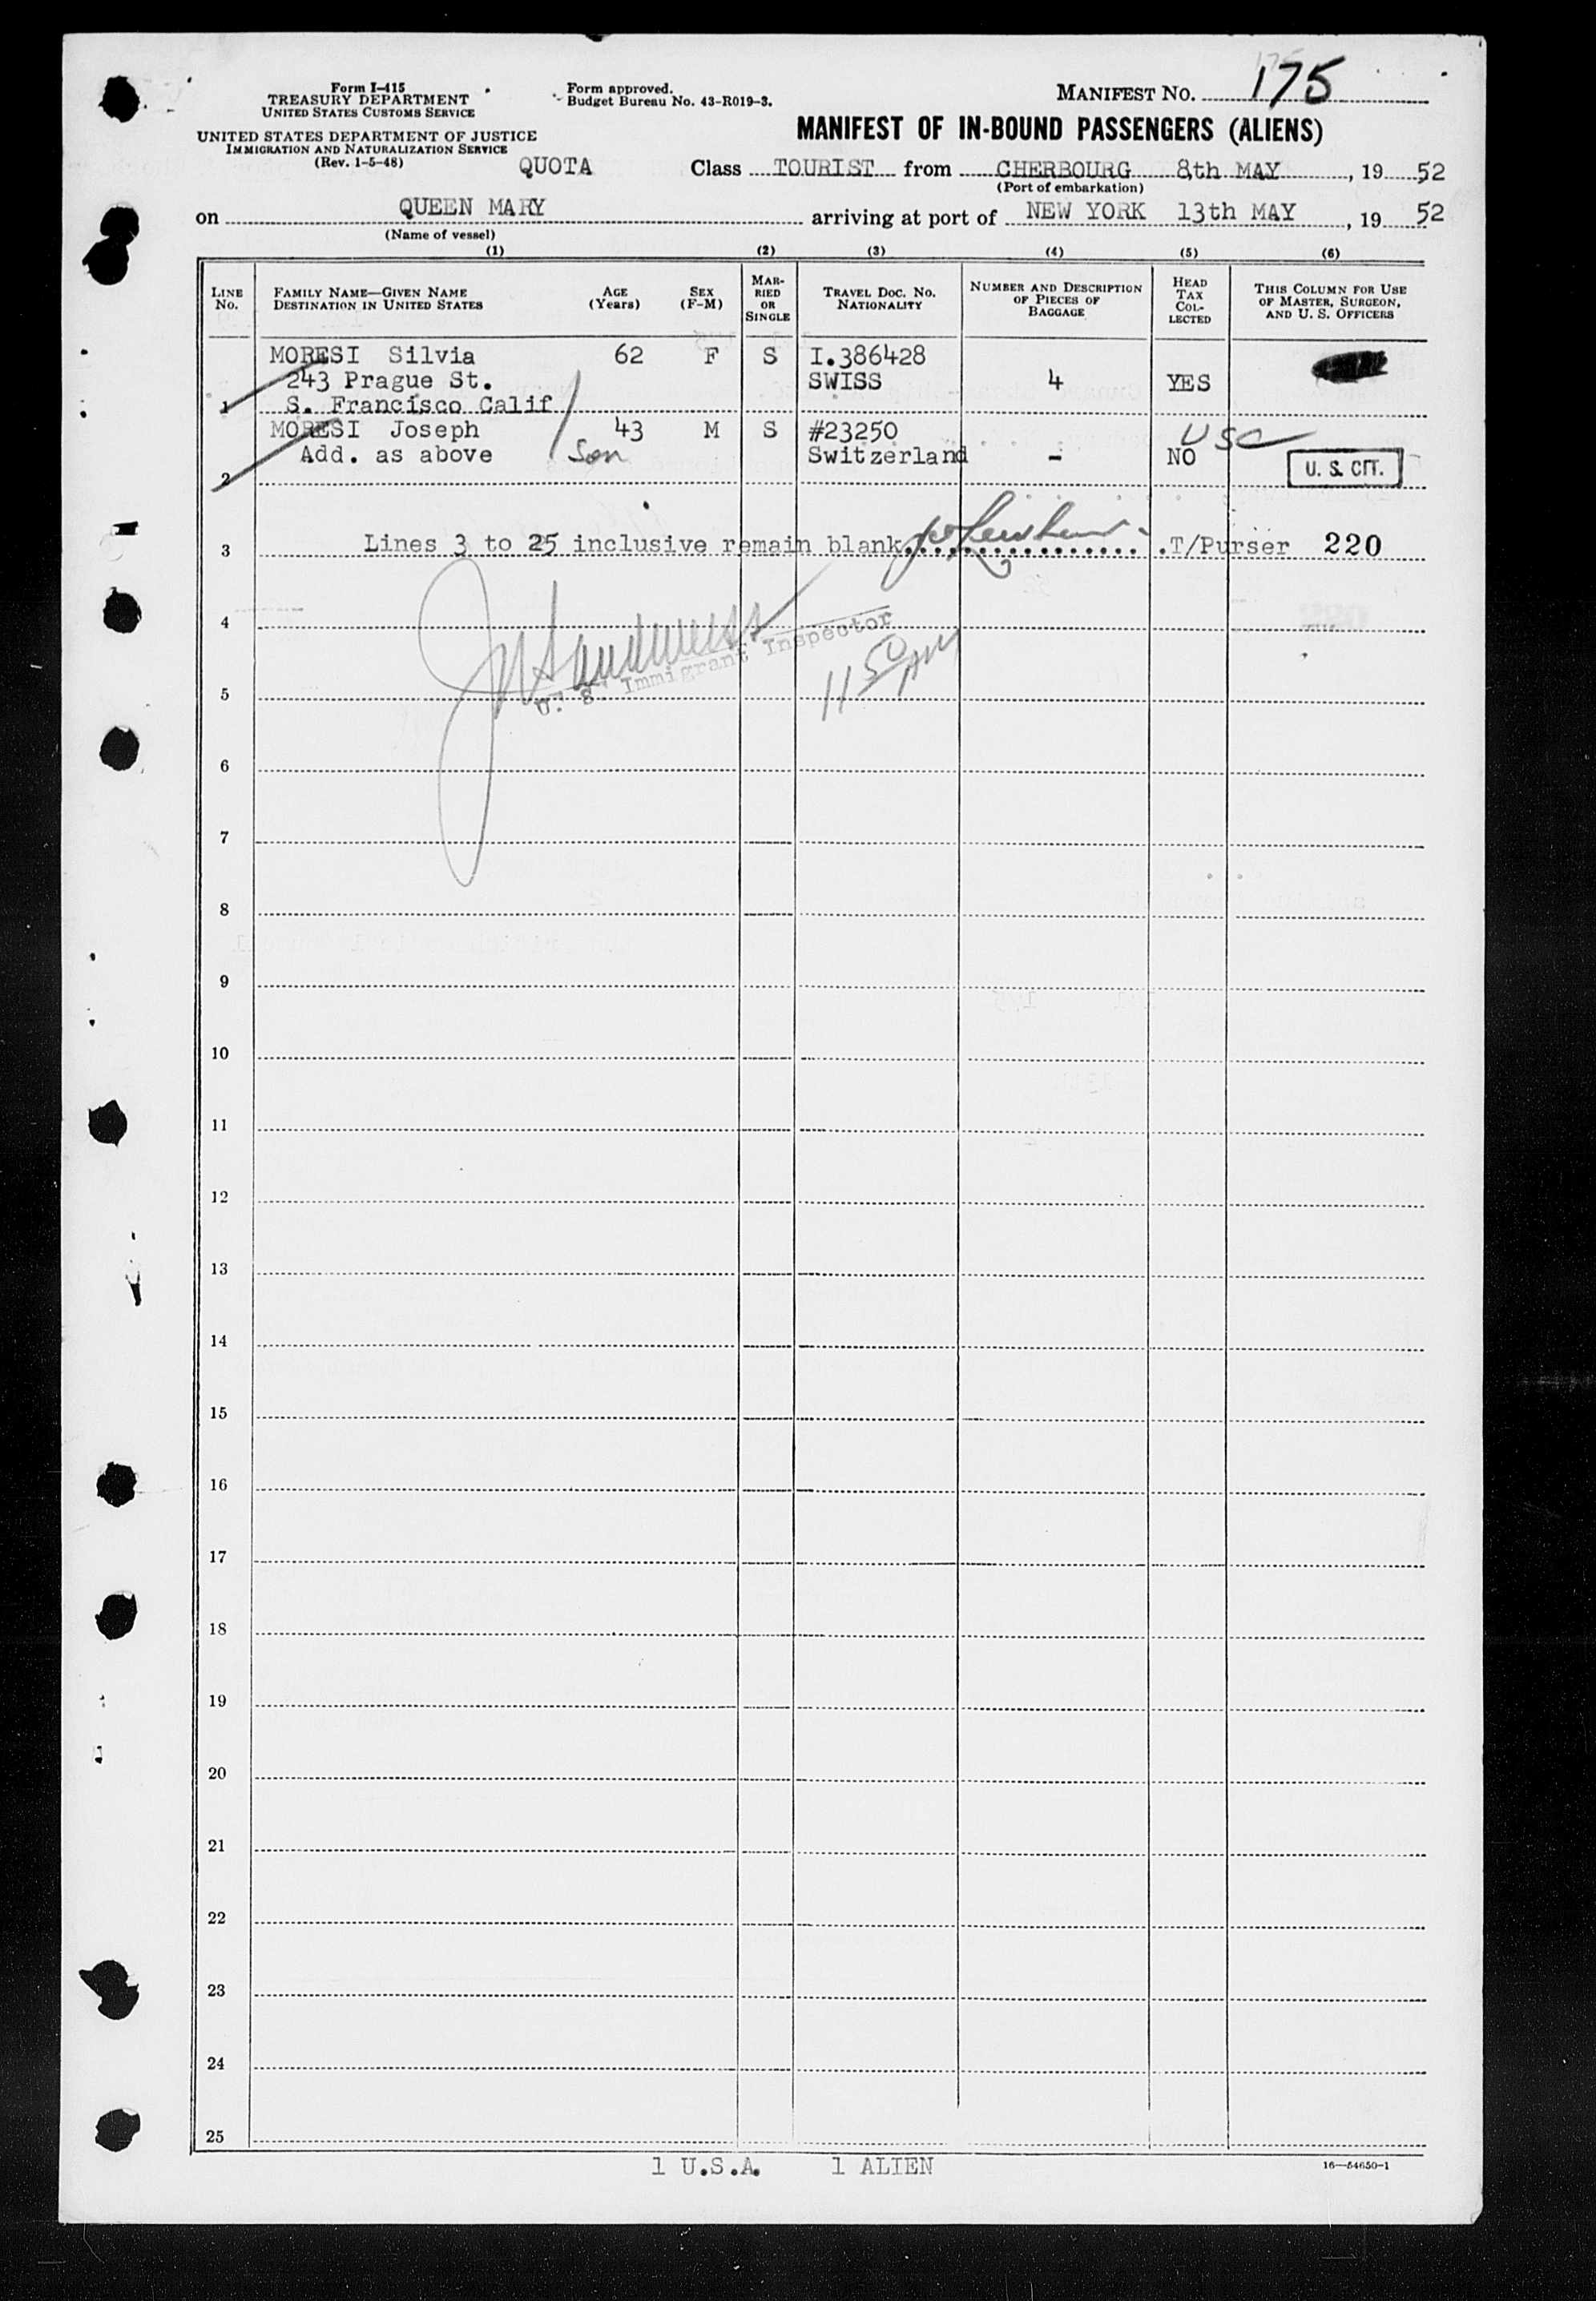 Form I-415
TREASURY DEPARTMENT
UNITED STATES CUSTOMS SERVICE
UNITED STATES DEPARTMENT OF JUSTICE
IMMIGRATION AND NATURALIZATION SERVICE
(Rev. 1-5-48)
Form approved.
Budget Bureau No. 43-R019-3.
MANIFEST NO. 175
MANIFEST OF IN-BOUND PASSENGERS (ALIENS)
QUOTA Class TOURIST from CHERBOURG 8th MAY, 1952
(Port of embarkation)
on QUEEN MARY arriving at port of NEW YORK 13th MAY, 1952
(Name of vessel)
(1) (2) (3) (4) (5) (6)
LINE NO.
FAMILY NAME—GIVEN NAME
DESTINATION IN UNITED STATES
AGE (Years)
SEX (F-M)
MARRIED OR SINGLE
TRAVEL DOC. NO.
NATIONALITY
NUMBER AND DESCRIPTION OF PIECES OF BAGGAGE
HEAD TAX COLLECTED
THIS COLUMN FOR USE OF MASTER, SURGEON, AND U. S. OFFICERS
MORESI Silvia 62 F S I.386428
243 Prague St. SWISS 4 YES
1 S. Francisco Calif
MORESI Joseph 43 M S #23250 USC
Add. as above Son Switzerland - NO U. S. CIT.
2
3 Lines 3 to 25 inclusive remain blank. T/Purser 220
4
U. S. Immigrant Inspector
11 50 AM
5
6
7
8
9
10
11
12
13
14
15
16
17
18
19
20
21
22
23
24
25
1 U.S.A. 1 ALIEN
16—54650-1